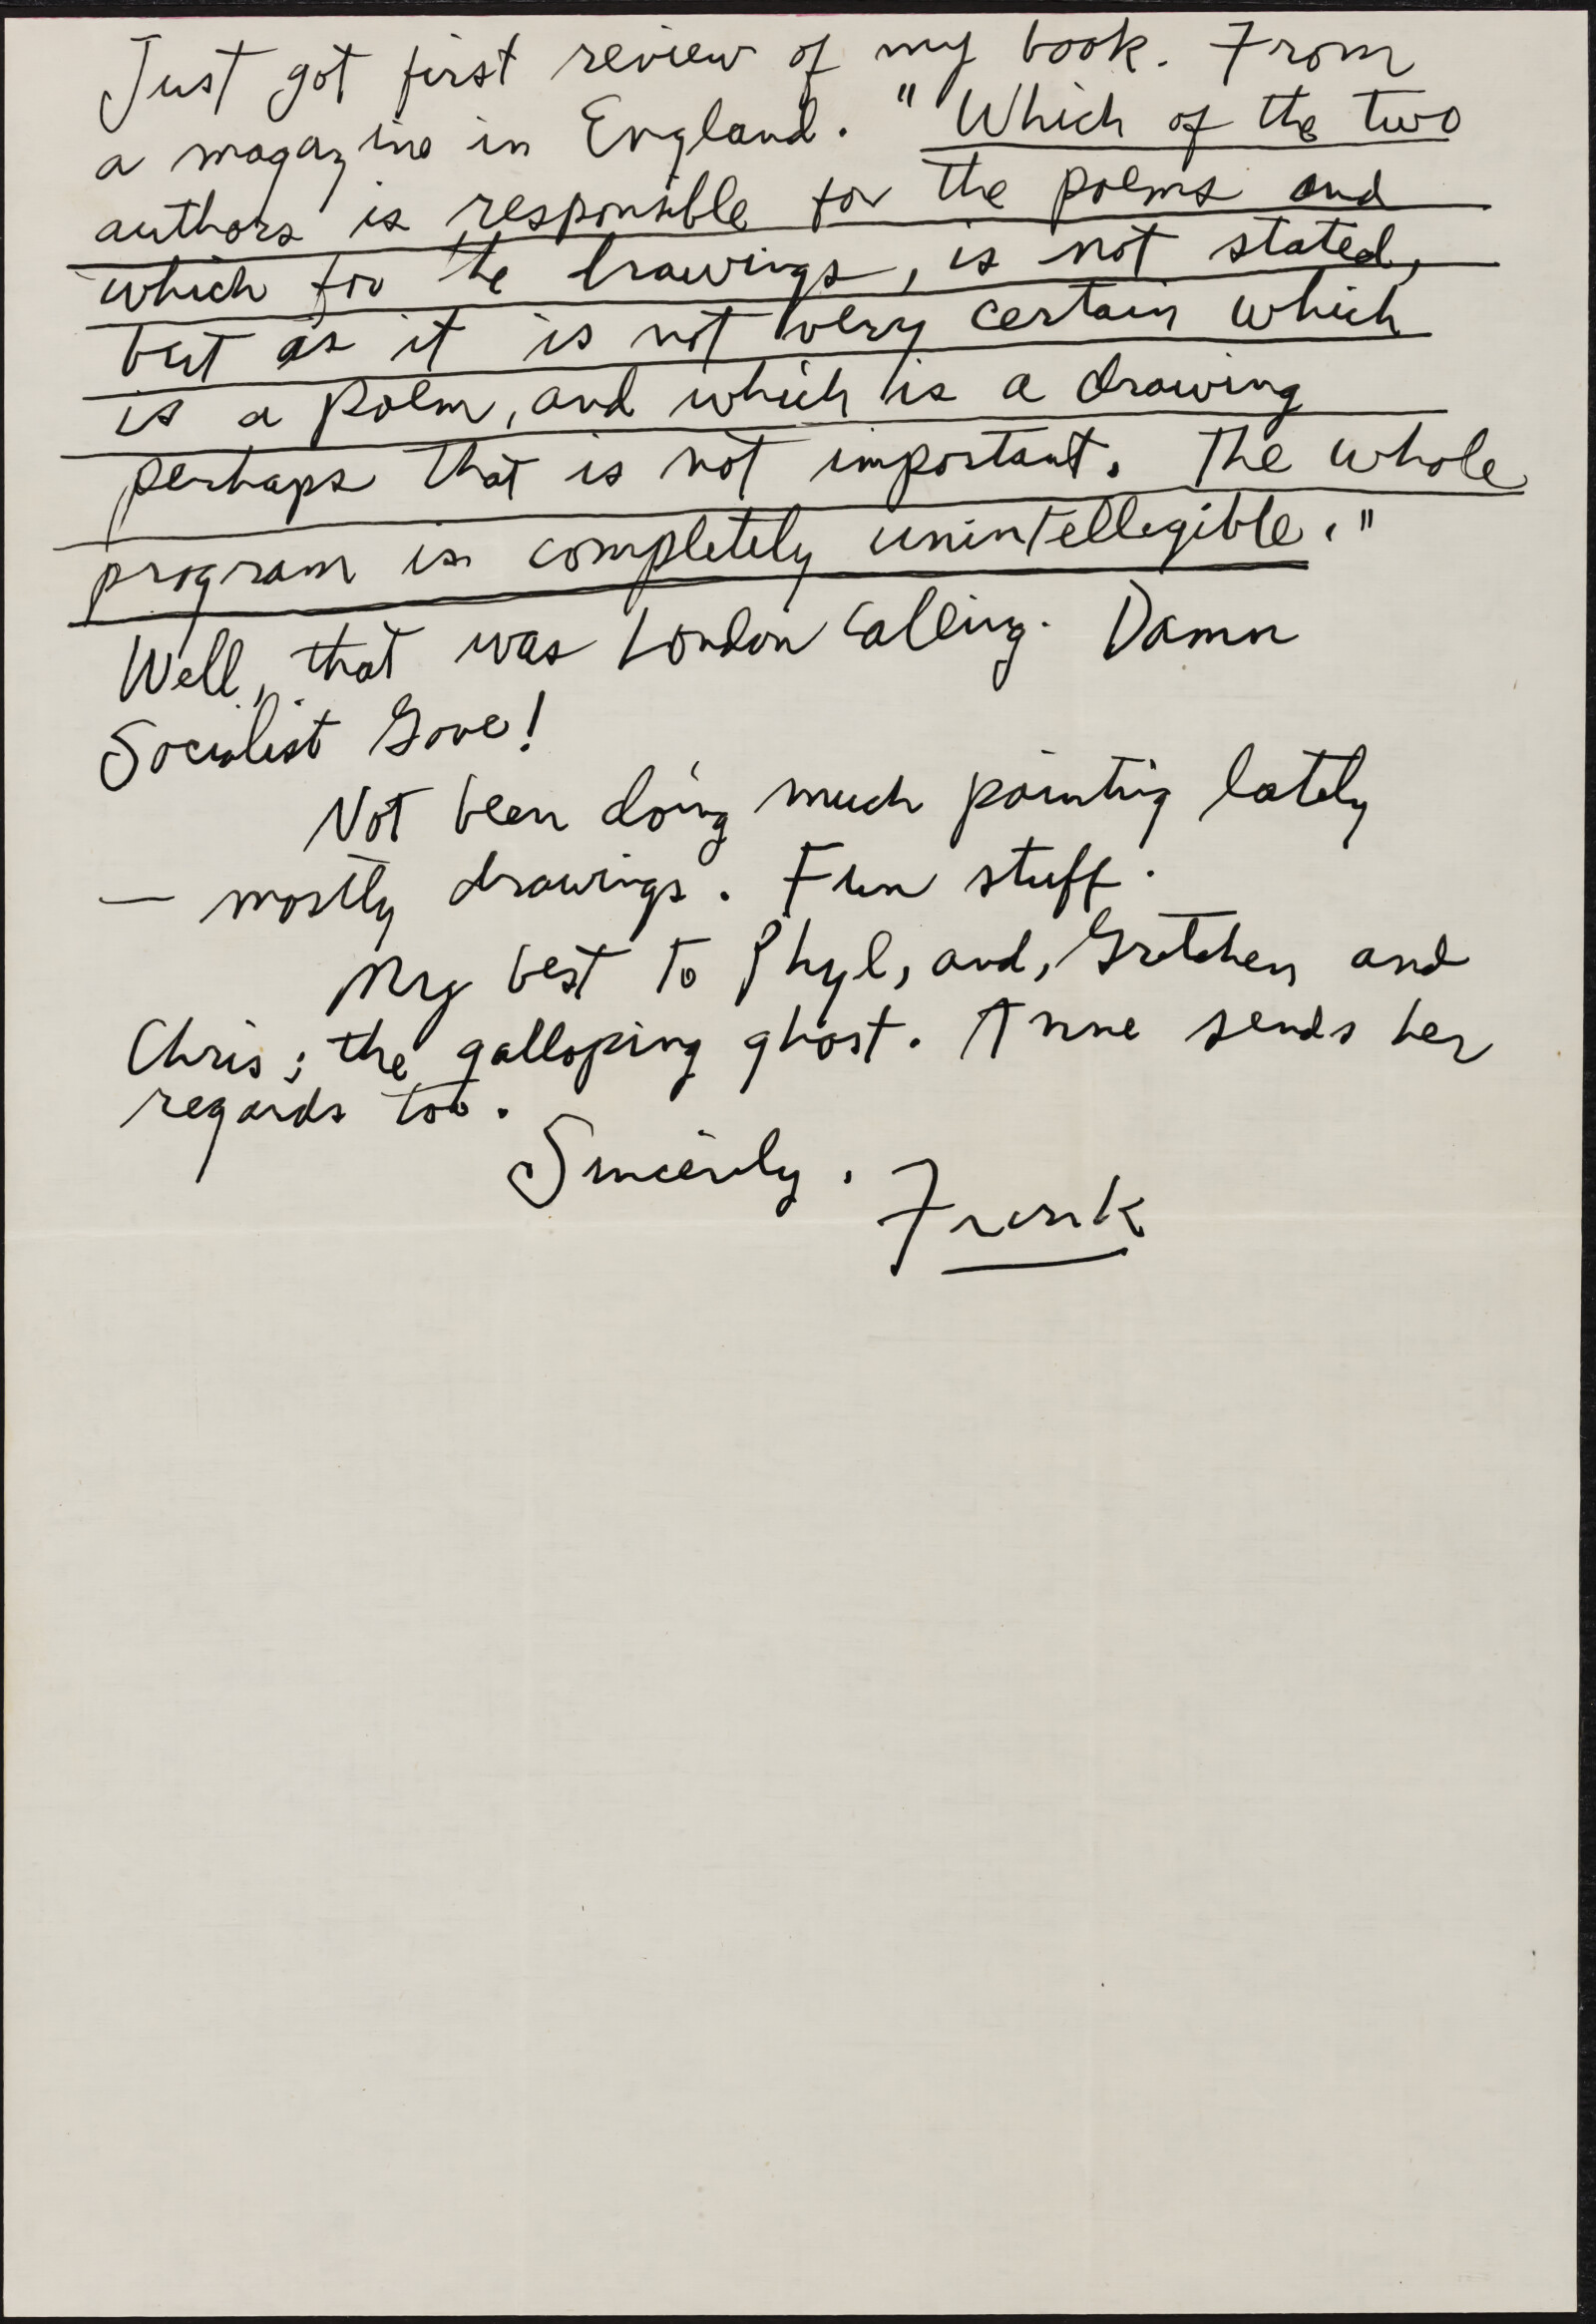 Just got first review of my book. From
a magazine in England. "Which of the two
authors is responsible for the poems and
which for the drawings, is not stated,
but as it is not very certain which
is a poem, and which is a drawing
perhaps that is not important. The whole
program is completely unintellegible."
Well, that was London Calling. Damn
Socialist Gove!
Not been doing much painting lately
— mostly drawings. Fun stuff.
My best to Phyl, and, Gretchen and
Chris; the galloping ghost. Anne sends her
regards too.
Sincerely,
Frank